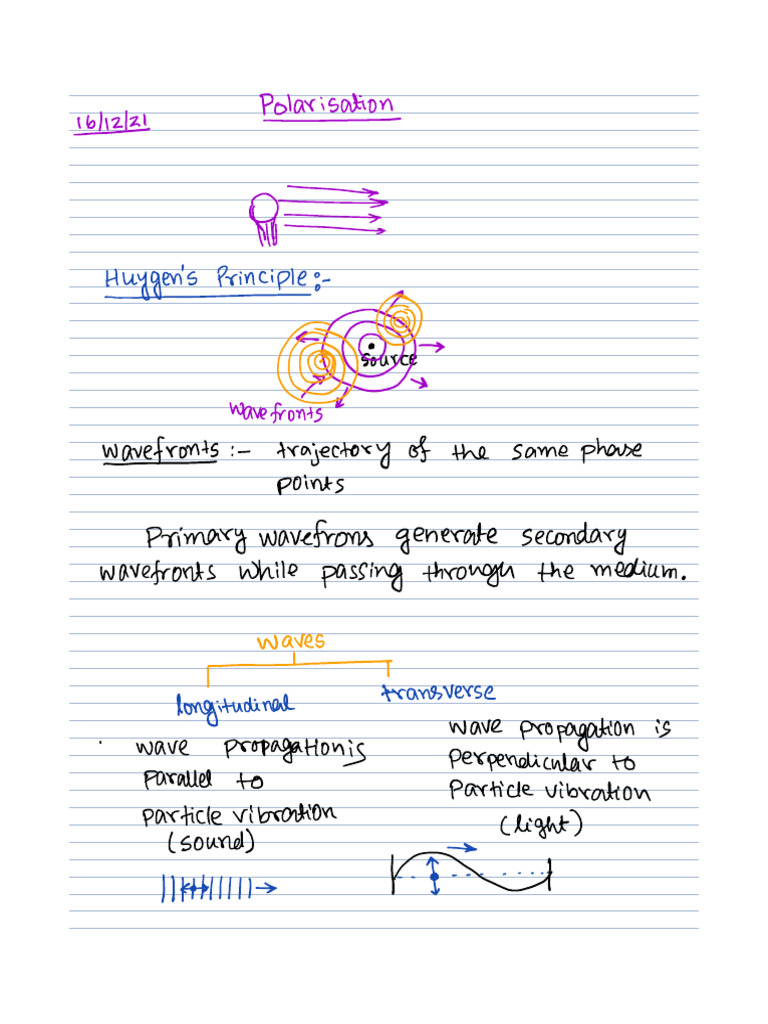 Polarisation
16/12/21
Huygen's Principle:-
source
wavefronts
wavefronts :- trajectory of the same phase
points
Primary wavefrons generate secondary
wavefronts while passing through the medium.
waves
longitudinal
transverse
wave propagation is
parallel to
particle vibration
(sound)
wave propagation is
perpendicular to
particle vibration
(light)